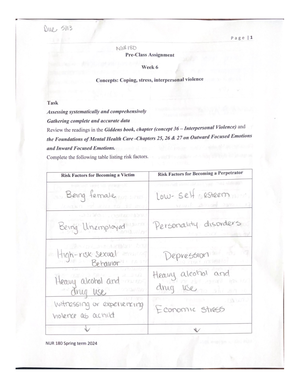 Due 5/2
Page | 1
NUR 180
Pre-Class Assignment
Week 6
Concepts: Coping, stress, interpersonal violence
Task
Assessing systematically and comprehensively
Gathering complete and accurate data
Review the readings in the Giddens book, chapter (concept 36 – Interpersonal Violence) and
the Foundations of Mental Health Care-Chapters 25, 26 & 27 on Outward Focused Emotions
and Inward Focused Emotions.
Complete the following table listing risk factors.
Risk Factors for Becoming a Victim Risk Factors for Becoming a Perpetrator
Being female Low-self-esteem
Being Unemployed Personality disorders
High-risk sexual Depression
Behavior
Heavy alcohol and Heavy alcohol and
drug use drug use
witnessing or experiencing Economic stress
violence as a child
NUR 180 Spring term 2024